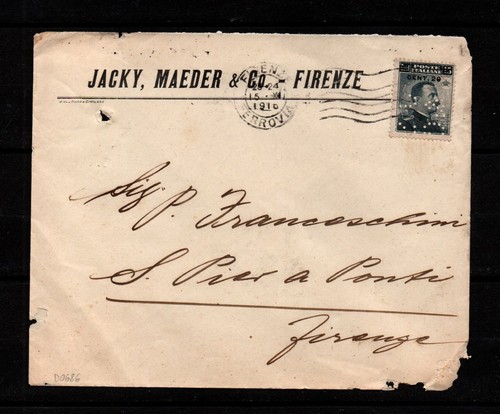 JACKY, MAEDER & Co - FIRENZE
FIRENZE
23-24
1916
FERROVIA
POSTE
ITALIANE
CENT. 20
Sig P. Franceschini
S. Pier a Ponti
Firenze
D0686